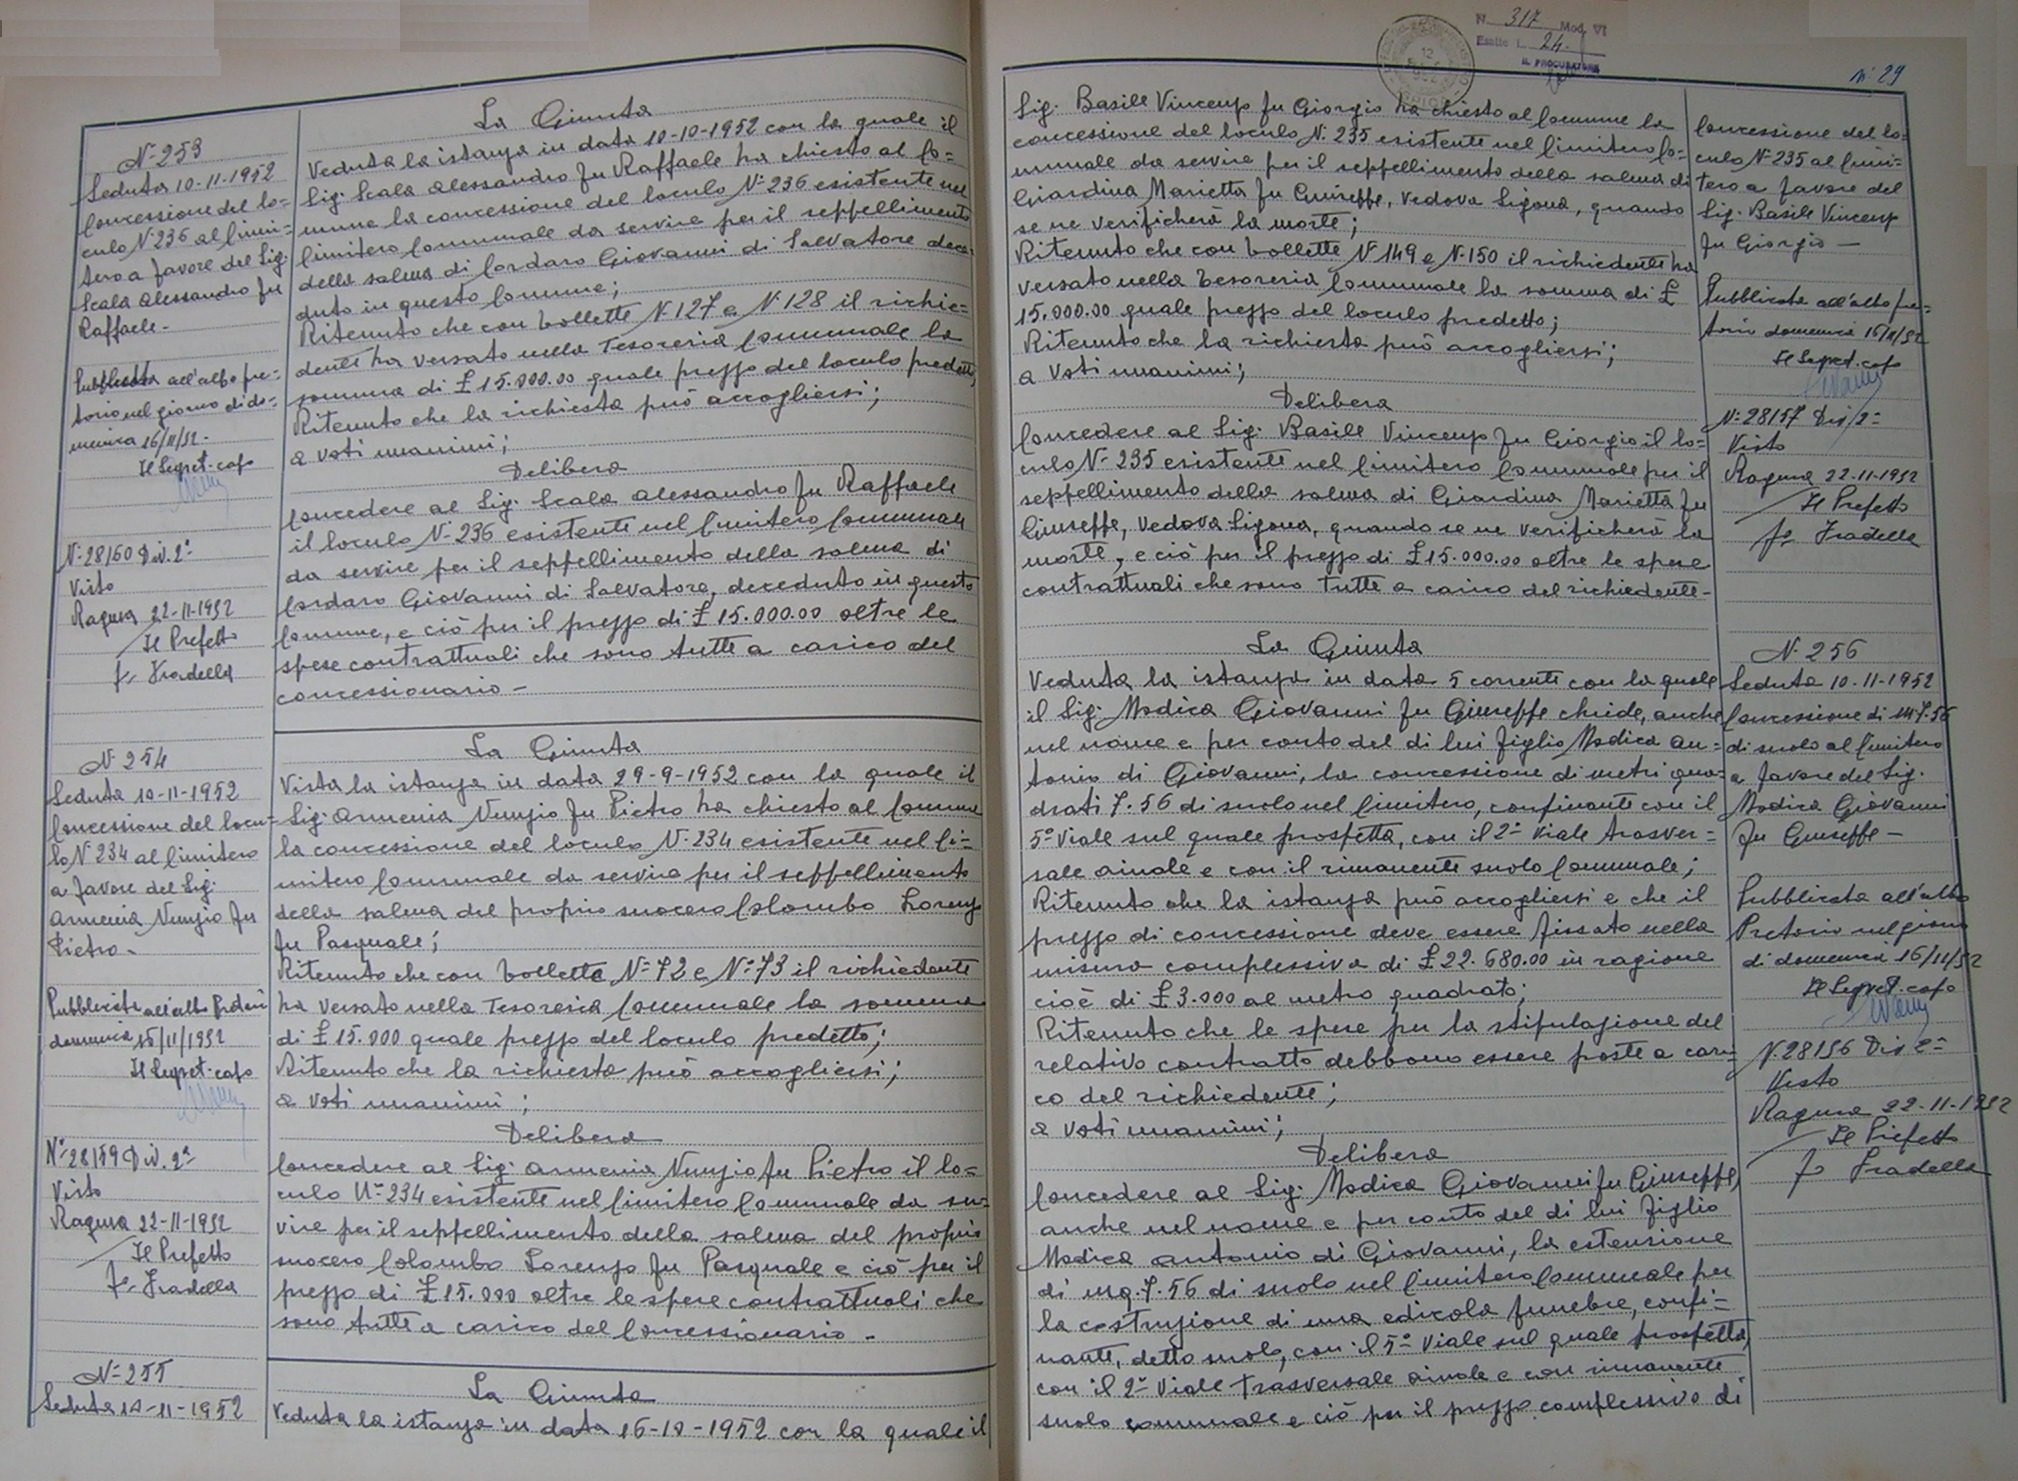 N. 253
Seduta 10-11-1952
Concessione del lo=
culo N. 236 al Cimi=
tero a favore del Sig.
Scala Alessandro fu
Raffaele-
Pubblicata all'albo pre=
torio nel giorno di do=
menica 16/11/52-
Il Segret. capo
N. 28160 Div. 2ª
Visto
Ragusa 22-11-1952
Il Prefetto
fº Fradella
La Giunta
Veduta la istanza in data 10-10-1952 con la quale il
Sig. Scala Alessandro fu Raffaele ha chiesto al Co=
mune la concessione del loculo N. 236 esistente nel
Cimitero Comunale da servire per il seppellimento
della salma di Cordaro Giovanni di Salvatore dece=
duto in questo Comune;
Ritenuto che con bollette N. 127 e N. 128 il richie=
dente ha versato nella Tesoreria Comunale la
somma di £ 15.000.00 quale prezzo del loculo predetto;
Ritenuto che la richiesta può accogliersi;
a voti unanimi;
Delibera
Concedere al Sig. Scala Alessandro fu Raffaele
il loculo N. 236 esistente nel Cimitero Comunale
da servire per il seppellimento della salma di
Cordaro Giovanni di Salvatore, deceduto in questo
Comune, e ciò per il prezzo di £ 15.000.00 oltre le
spese contrattuali che sono tutte a carico del
concessionario-
N. 254
Seduta 10-11-1952
Concessione del locu=
lo N. 234 al Cimitero
a favore del Sig.
Armenia Nunzio fu
Pietro-
Pubblicata all'albo Pretorio
domenica 16/11/1952
Il Segret. capo
Nº 28159 Div. 2ª
Visto
Ragusa 22-11-1952
Il Prefetto
fº Fradella
La Giunta
Vista la istanza in data 29-9-1952 con la quale il
Sig. Armenia Nunzio fu Pietro ha chiesto al Comune
la concessione del loculo N. 234 esistente nel Ci=
mitero Comunale da servire per il seppellimento
della salma del proprio suocero Colombo Lorenzo
fu Pasquale;
Ritenuto che con bollette Nº 72 e Nº 73 il richiedente
ha versato nella Tesoreria Comunale la somma
di £ 15.000 quale prezzo del loculo predetto;
Ritenuto che la richiesta può accogliersi;
a voti unanimi;
Delibera
Concedere al Sig. Armenia Nunzio fu Pietro il lo=
culo Nº 234 esistente nel Cimitero Comunale da ser=
vire per il seppellimento della salma del proprio
suocero Colombo Lorenzo fu Pasquale e ciò per il
prezzo di £ 15.000 oltre le spese contrattuali che
sono tutte a carico del Concessionario-
N. 255
Seduta 10-11-1952
La Giunta
Veduta la istanza in data 16-10-1952 con la quale il
N. 317 Mod. VI
Esatte L. 24.
IL PROCURATORE
Nº 29
Sig. Basile Vincenzo fu Giorgio ha chiesto al Comune la
concessione del loculo N. 235 esistente nel Cimitero Co=
munale da servire per il seppellimento della salma di
Giardina Marietta fu Giuseppe, vedova Ligona, quando
se ne verificherà la morte;
Ritenuto che con bollette N. 149 e N. 150 il richiedente ha
versato nella Tesoreria Comunale la somma di £
15.000.00 quale prezzo del loculo predetto;
Ritenuto che la richiesta può accogliersi;
a voti unanimi;
Delibera
Concedere al Sig. Basile Vincenzo fu Giorgio il lo=
culo N. 235 esistente nel Cimitero Comunale per il
seppellimento della salma di Giardina Marietta fu
Giuseppe, vedova Ligona, quando se ne verificherà la
morte, e ciò per il prezzo di £ 15.000.00 oltre le spese
contrattuali che sono tutte a carico del richiedente-
Concessione del lo=
culo N. 235 al Cimi=
tero a favore del
Sig. Basile Vincenzo
fu Giorgio-
Pubblicata all'albo pre=
torio domenica 16/11/52
Il Segret. capo
N. 28157 Div. 2ª
Visto
Ragusa 22-11-1952
Il Prefetto
fº Fradella
La Giunta
Veduta la istanza in data 5 corrente con la quale
il Sig. Modica Giovanni fu Giuseppe chiede, anche
nel nome e per conto del di lui figlio Modica An=
tonio di Giovanni, la concessione di metri qua=
drati 7.56 di suolo nel Cimitero, confinante con il
5º viale sul quale prospetta, con il 2º viale trasver=
sale ainale e con il rimanente suolo Comunale;
Ritenuto che la istanza può accogliersi e che il
prezzo di concessione deve essere fissato nella
misura complessiva di £ 22.680.00 in ragione
cioè di £ 3.000 al metro quadrato;
Ritenuto che le spese per la stipulazione del
relativo contratto debbono essere poste a cari=
co del richiedente;
a voti unanimi;
Delibera
Concedere al Sig. Modica Giovanni fu Giuseppe,
anche nel nome e per conto del di lui figlio
Modica Antonio di Giovanni, la estensione
di mq. 7.56 di suolo nel Cimitero Comunale per
la costruzione di una edicola funebre, confi=
nante, detto suolo, con il 5º viale sul quale prospetta,
con il 2º viale trasversale ainale e con rimanente
suolo comunale e ciò per il prezzo complessivo di
N. 256
Seduta 10-11-1952
Concessione di mq 7.56
di suolo al Cimitero
a favore del Sig.
Modica Giovanni
fu Giuseppe-
Pubblicata all'albo
Pretorio nel giorno
di domenica 16/11/52
Il Segret. capo
N. 28156 Div. 2ª
Visto
Ragusa 22-11-1952
Il Prefetto
fº Fradella